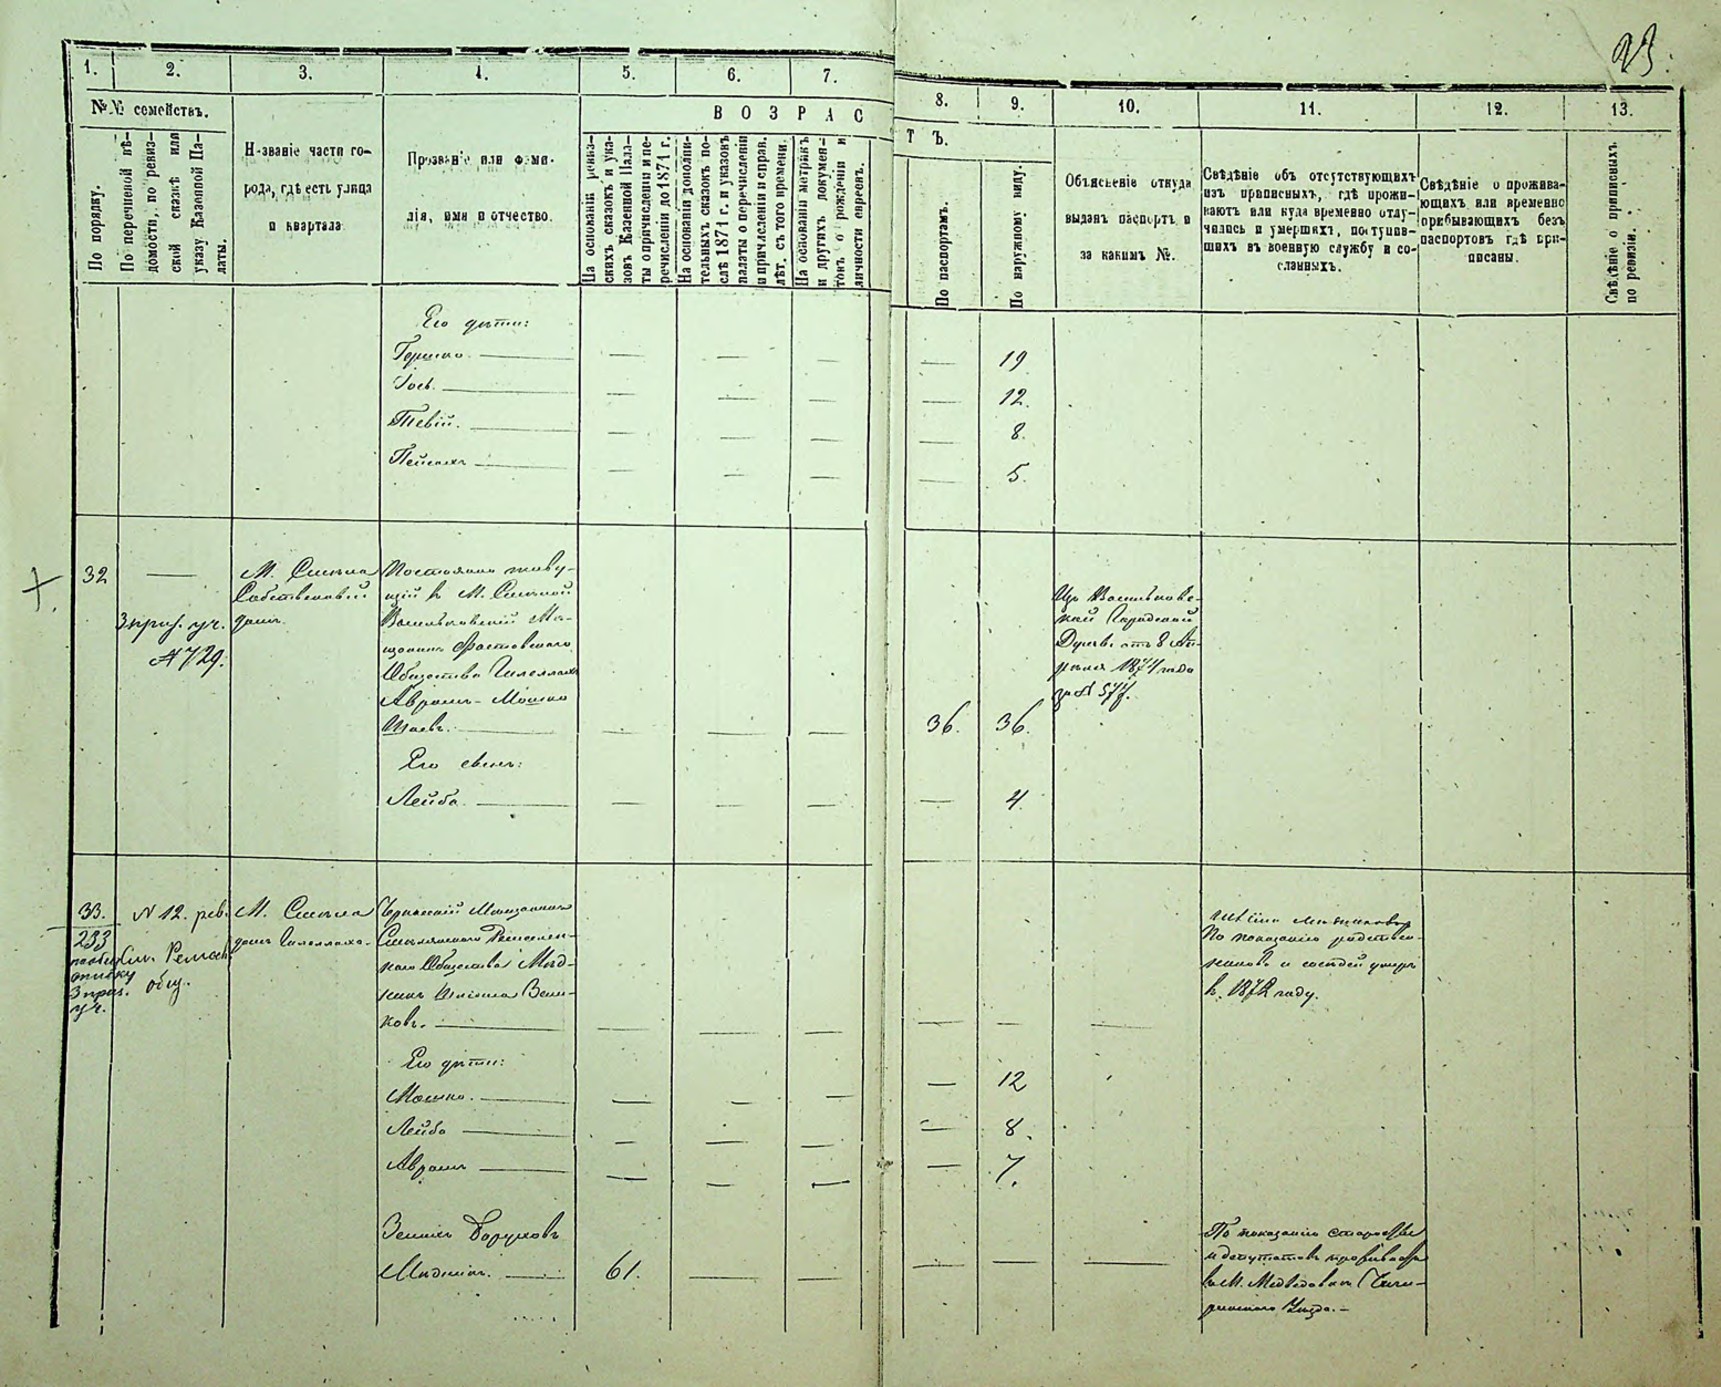 23.
1. 2. 3. 4. 5. 6. 7. 8. 9. 10. 11. 12. 13.
№№ семействъ.
По порядку.
По перечневой вѣ-
домости, по ревиз-
ской сказкѣ или
указу Казенной Па-
латы.
Названіе части го-
рода, гдѣ есть улица
и квартала
Прозваніе или фами-
лія, имя и отчество.
ВОЗРАС
ТЪ.
На основаніи ревиз-
скихъ сказокъ и ука-
зовъ Казенной Пала-
ты о причисленіи и пе-
речисленіи до 1871 г.
На основаніи дополни-
тельныхъ сказокъ по-
слѣ 1871 г. и указовъ
палаты о перечисленіи
и причисленіи и справ.
лѣт. съ того времени.
На основаніи метрикъ
и другихъ докумен-
товъ о рожденіи и
личности евреевъ.
По паспортамъ.
По наружному виду.
Объясненіе откуда
выданъ паспортъ и
за какимъ №.
Свѣдѣніе объ отсутствующихъ
изъ приписныхъ, гдѣ прожи-
ваютъ или куда временно отлу-
чились и умершихъ, поступив-
шихъ въ военную службу и со-
сланныхъ.
Свѣдѣніе о прожива-
ющихъ или временно
пребывающихъ безъ
паспортовъ гдѣ при-
писаны.
Свѣдѣніе о приписныхъ
по ревизіи.
Его дѣти:
Гершко — — — — — 19
Іось. — — — — — 12.
Тевій. — — — — — 8.
Пейсахъ — — — — — 5.
32 — М. Смѣла
Собственный
домъ.
3 приз. уч.
№ 729.
Постоянно живу-
щій въ М. Смѣлой
Васильковскій Мѣ-
щанинъ Фастовскаго
Общества
Аврумъ-Мошко
Шаевъ. — — — — 36. 36.
Изъ Васильковс-
кой Городской
Думы отъ 8 Ап-
рѣля 1874 года
за № 577.
Его сынъ:
Лейба — — — — — 4.
33.
233
3 приз.
уч.
№ 12. рев.
см. Ремесл.
общ.
М. Смѣла
домъ
Мѣщанинъ
Смѣлянскаго Ремеслен-
наго Общества
ковъ. — — — — — — —
По показанію родствен-
никовъ и сосѣдей умеръ
въ 1872 году.
Его дѣти:
Мошко. — — — — — 12
Лейба — — — — — 8.
Аврумъ — — — — — 7.
Зельманъ Боруховъ
61. — — — — —
По показанію старосты
и депутатовъ проживаетъ
въ М. Медведовкѣ Чиги-
ринскаго Уѣзда. —